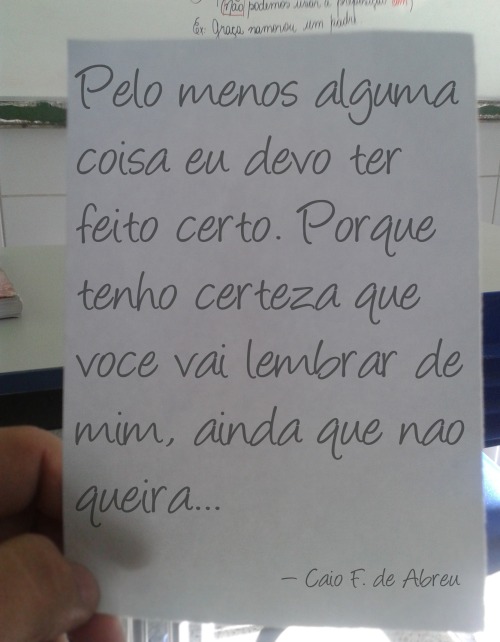 (não) podemos usar a preposição com)
Ex: Graça namorou um padre
Pelo menos alguma
coisa eu devo ter
feito certo. Porque
tenho certeza que
voce vai lembrar de
mim, ainda que nao
queira...
— Caio F. de Abreu